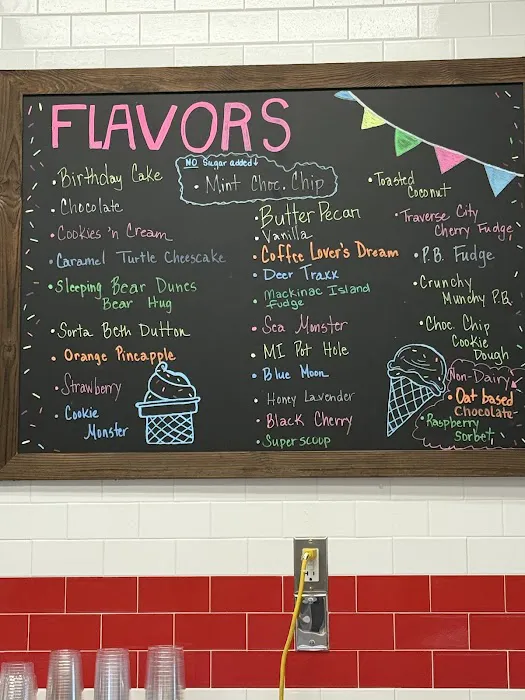 FLAVORS
• Birthday Cake
• Chocolate
• Cookies 'n Cream
• Caramel Turtle Cheescake
• Sleeping Bear Dunes
Bear Hug
• Sorta Beth Dutton
• Orange Pineapple
• Strawberry
• Cookie
Monster
NO Sugar added↓
• Mint Choc. Chip
• Butter Pecan
• Vanilla
• Coffee Lover's Dream
• Deer Traxx
• Mackinac Island
fudge
• Sea Monster
• MI Pot Hole
• Blue Moon
• Honey Lavender
• Black Cherry
• Superscoop
• Toasted
Coconut
• Traverse City
Cherry Fudge
• P.B. Fudge
• Crunchy
Munchy P.B.
• Choc. Chip
Cookie
Dough
Non-Dairy
• Oat based
Chocolate
• Raspberry
Sorbet